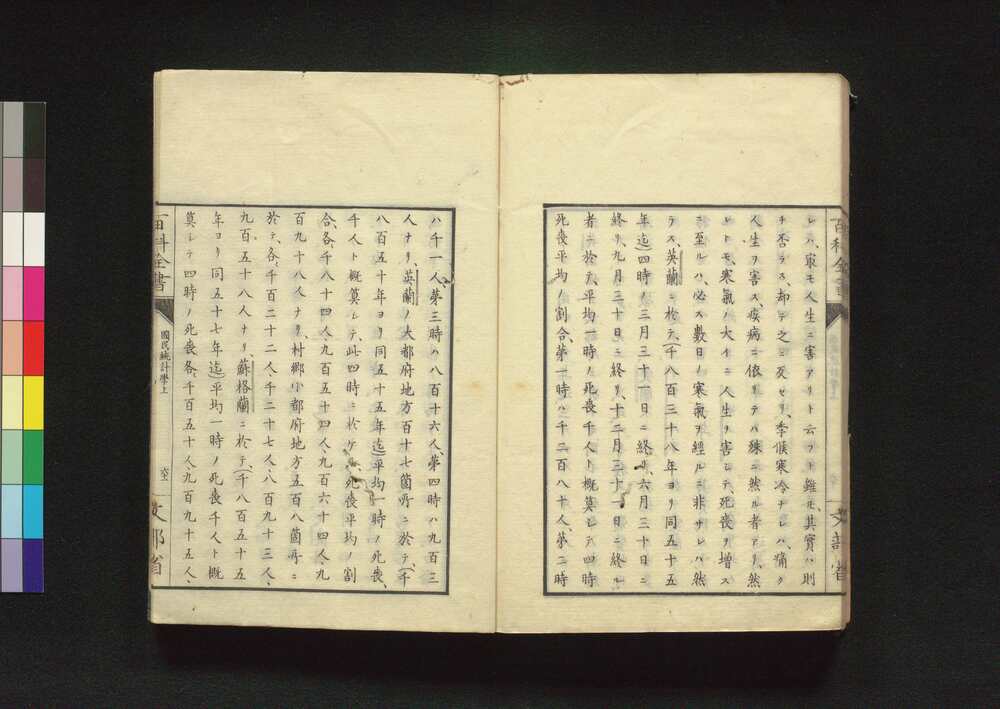 レハ、最モ人生ニ害アリト云フト雖𪜈、其實ハ則
チ否ラス、却テ之ニ反セリ、季候寒冷ナレハ、痛ク
人生ヲ害ス、疾病ニ依リテハ殊ニ然ル者アリ、然
レトモ、寒氣ノ大イニ人生ヲ害シテ、死喪ヲ增ス
ニ至ルハ、必ス數日ノ寒氣ヲ經ルニ非サレハ然
ラス、英蘭ニ於テ、（千八百三十八年ヨリ同五十五
年迄）四時ノ三月三十一日ニ終リ、六月三十日ニ
終リ、九月三十日ニ終リ、十二月三十一日ニ終ル
者ニ於テ、平均一時ノ死喪千人ト概算シテ四時
死喪平均ノ割合、第一時ハ千二百八十人、第二時
百科全書
文部省
ハ千一人、第三時ハ八百十六人、第四時ハ九百三
人ナリ、英蘭ノ大都府地方百十七箇所ニ於テ、（千
八百五十年ヨリ同五十五年迄）平均一時ノ死喪、
千人ト概算シテ、此四時ニ於ケル死喪平均ノ割
合、各千八十四人、九百五十四人、九百六十四人、九
百九十八人ナリ、村鄕小都府地方五百八箇所ニ
於テ、各千百二十二人、千二十七人、八百九十三人、
九百五十八人ナリ、蘇格蘭ニ於テ、（千八百五十五
年ヨリ同五十七年迄）平均一時ノ死喪千人ト概
算シテ四時ノ死喪各千百五十人、九百九十五人、
百科全書
國民統計學上
文部省